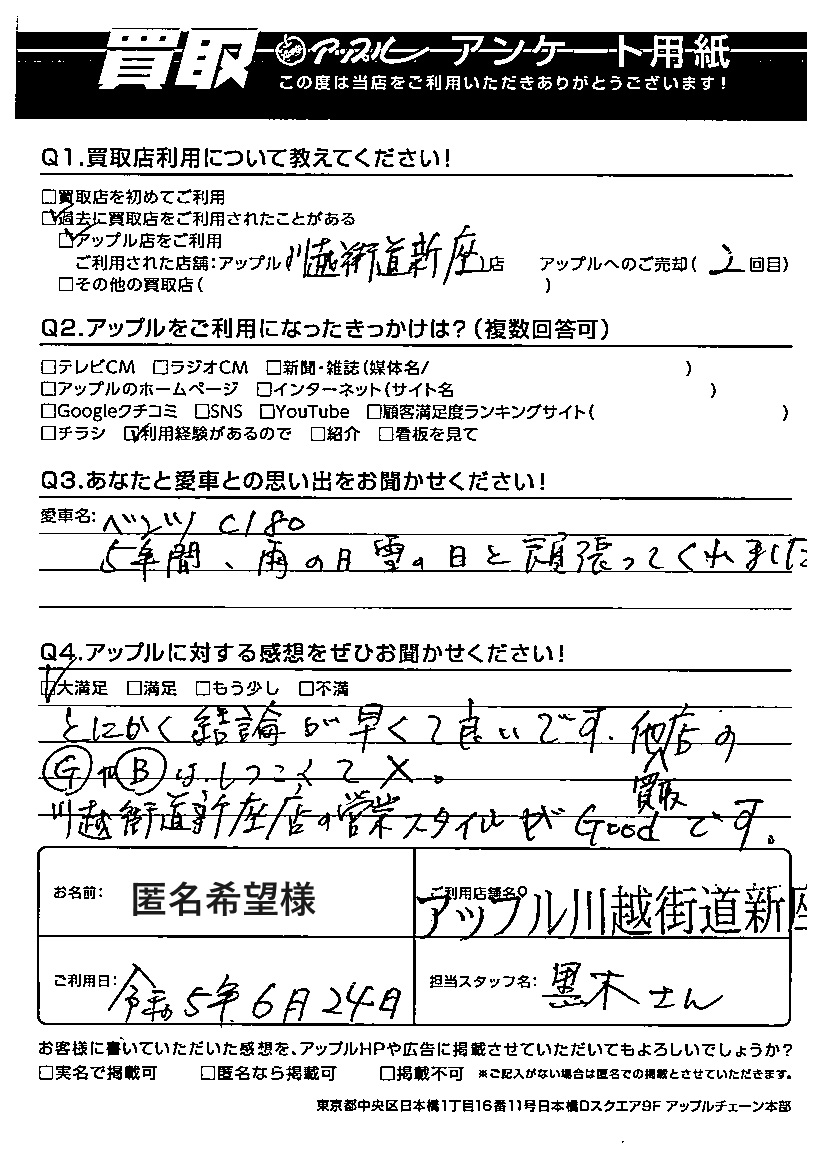 買取 アップル アンケート用紙
この度は当店をご利用いただきありがとうございます!
Q1.買取店利用について教えてください!
□買取店を初めてご利用
☑過去に買取店をご利用されたことがある
☑アップル店をご利用
ご利用された店舗:アップル(川越街道新座)店 アップルへのご売却(2回目)
□その他の買取店( )
Q2.アップルをご利用になったきっかけは?(複数回答可)
□テレビCM □ラジオCM □新聞・雑誌(媒体名/ )
□アップルのホームページ □インターネット(サイト名 )
□Googleクチコミ □SNS □YouTube □顧客満足度ランキングサイト( )
□チラシ ☑利用経験があるので □紹介 □看板を見て
Q3.あなたと愛車との思い出をお聞かせください!
愛車名: ベンツ C180
5年間、雨の日雪の日と頑張ってくれました
Q4.アップルに対する感想をぜひお聞かせください!
☑大満足 □満足 □もう少し □不満
とにかく結論が早くて良いです。他店の
買取
ⒼやⒷはしつこくて×。
川越街道新座店の営業スタイルがGoodです。
お名前: 匿名希望様
ご利用店舗名: アップル川越街道新座
ご利用日: 令和5年6月24日
担当スタッフ名: 黒木さん
お客様に書いていただいた感想を、アップルHPや広告に掲載させていただいてもよろしいでしょうか?
□実名で掲載可 □匿名なら掲載可 □掲載不可 ※ご記入がない場合は匿名での掲載とさせていただきます。
東京都中央区日本橋1丁目16番11号日本橋Dスクエア9F アップルチェーン本部